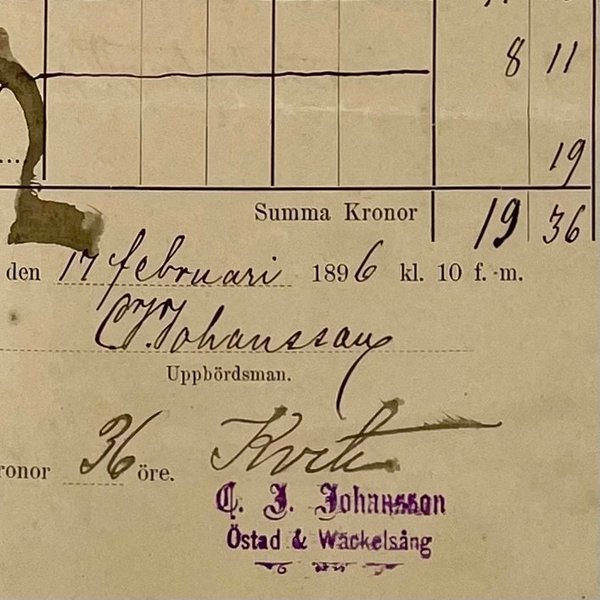 8 11
19
Summa Kronor 19 36
den 17 februari 1896 kl. 10 f.-m.
C. J. Johansson
Uppbördsman.
ronor 36 öre. Kvit.
C. J. Johansson
Östad & Wäckelsång